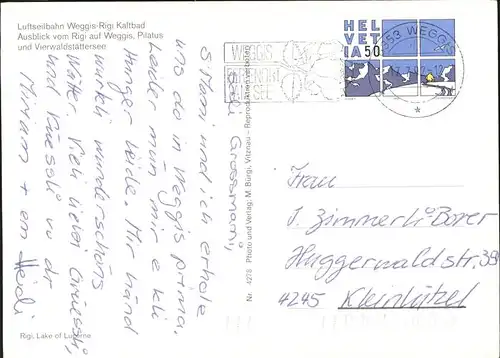 Luftseilbahn Weggis-Rigi Kaltbad
Ausblick vom Rigi auf Weggis, Pilatus
und Vierwaldstättersee
HEL
VET
IA 50
6353 WEGGIS
WEGGIS
AM SEE
Grossmami,
S Mami und ich erhole
uns do in Weggis prima.
Leider müm mir e kli
Hunger leide. Mir händ
würkli wunderschöns
Wätter. Vieli liebi Grüessli,
und Küessli vo dr
Miriam + em Heidi
Nr. 4278 Photo und Verlag: M. Bürgi, Vitznau – Reproduktion verboten
Frau
J. Zimmerli-Borer
Huggerwaldstr. 39
4245 Kleinlützel
Rigi, Lake of Lucerne